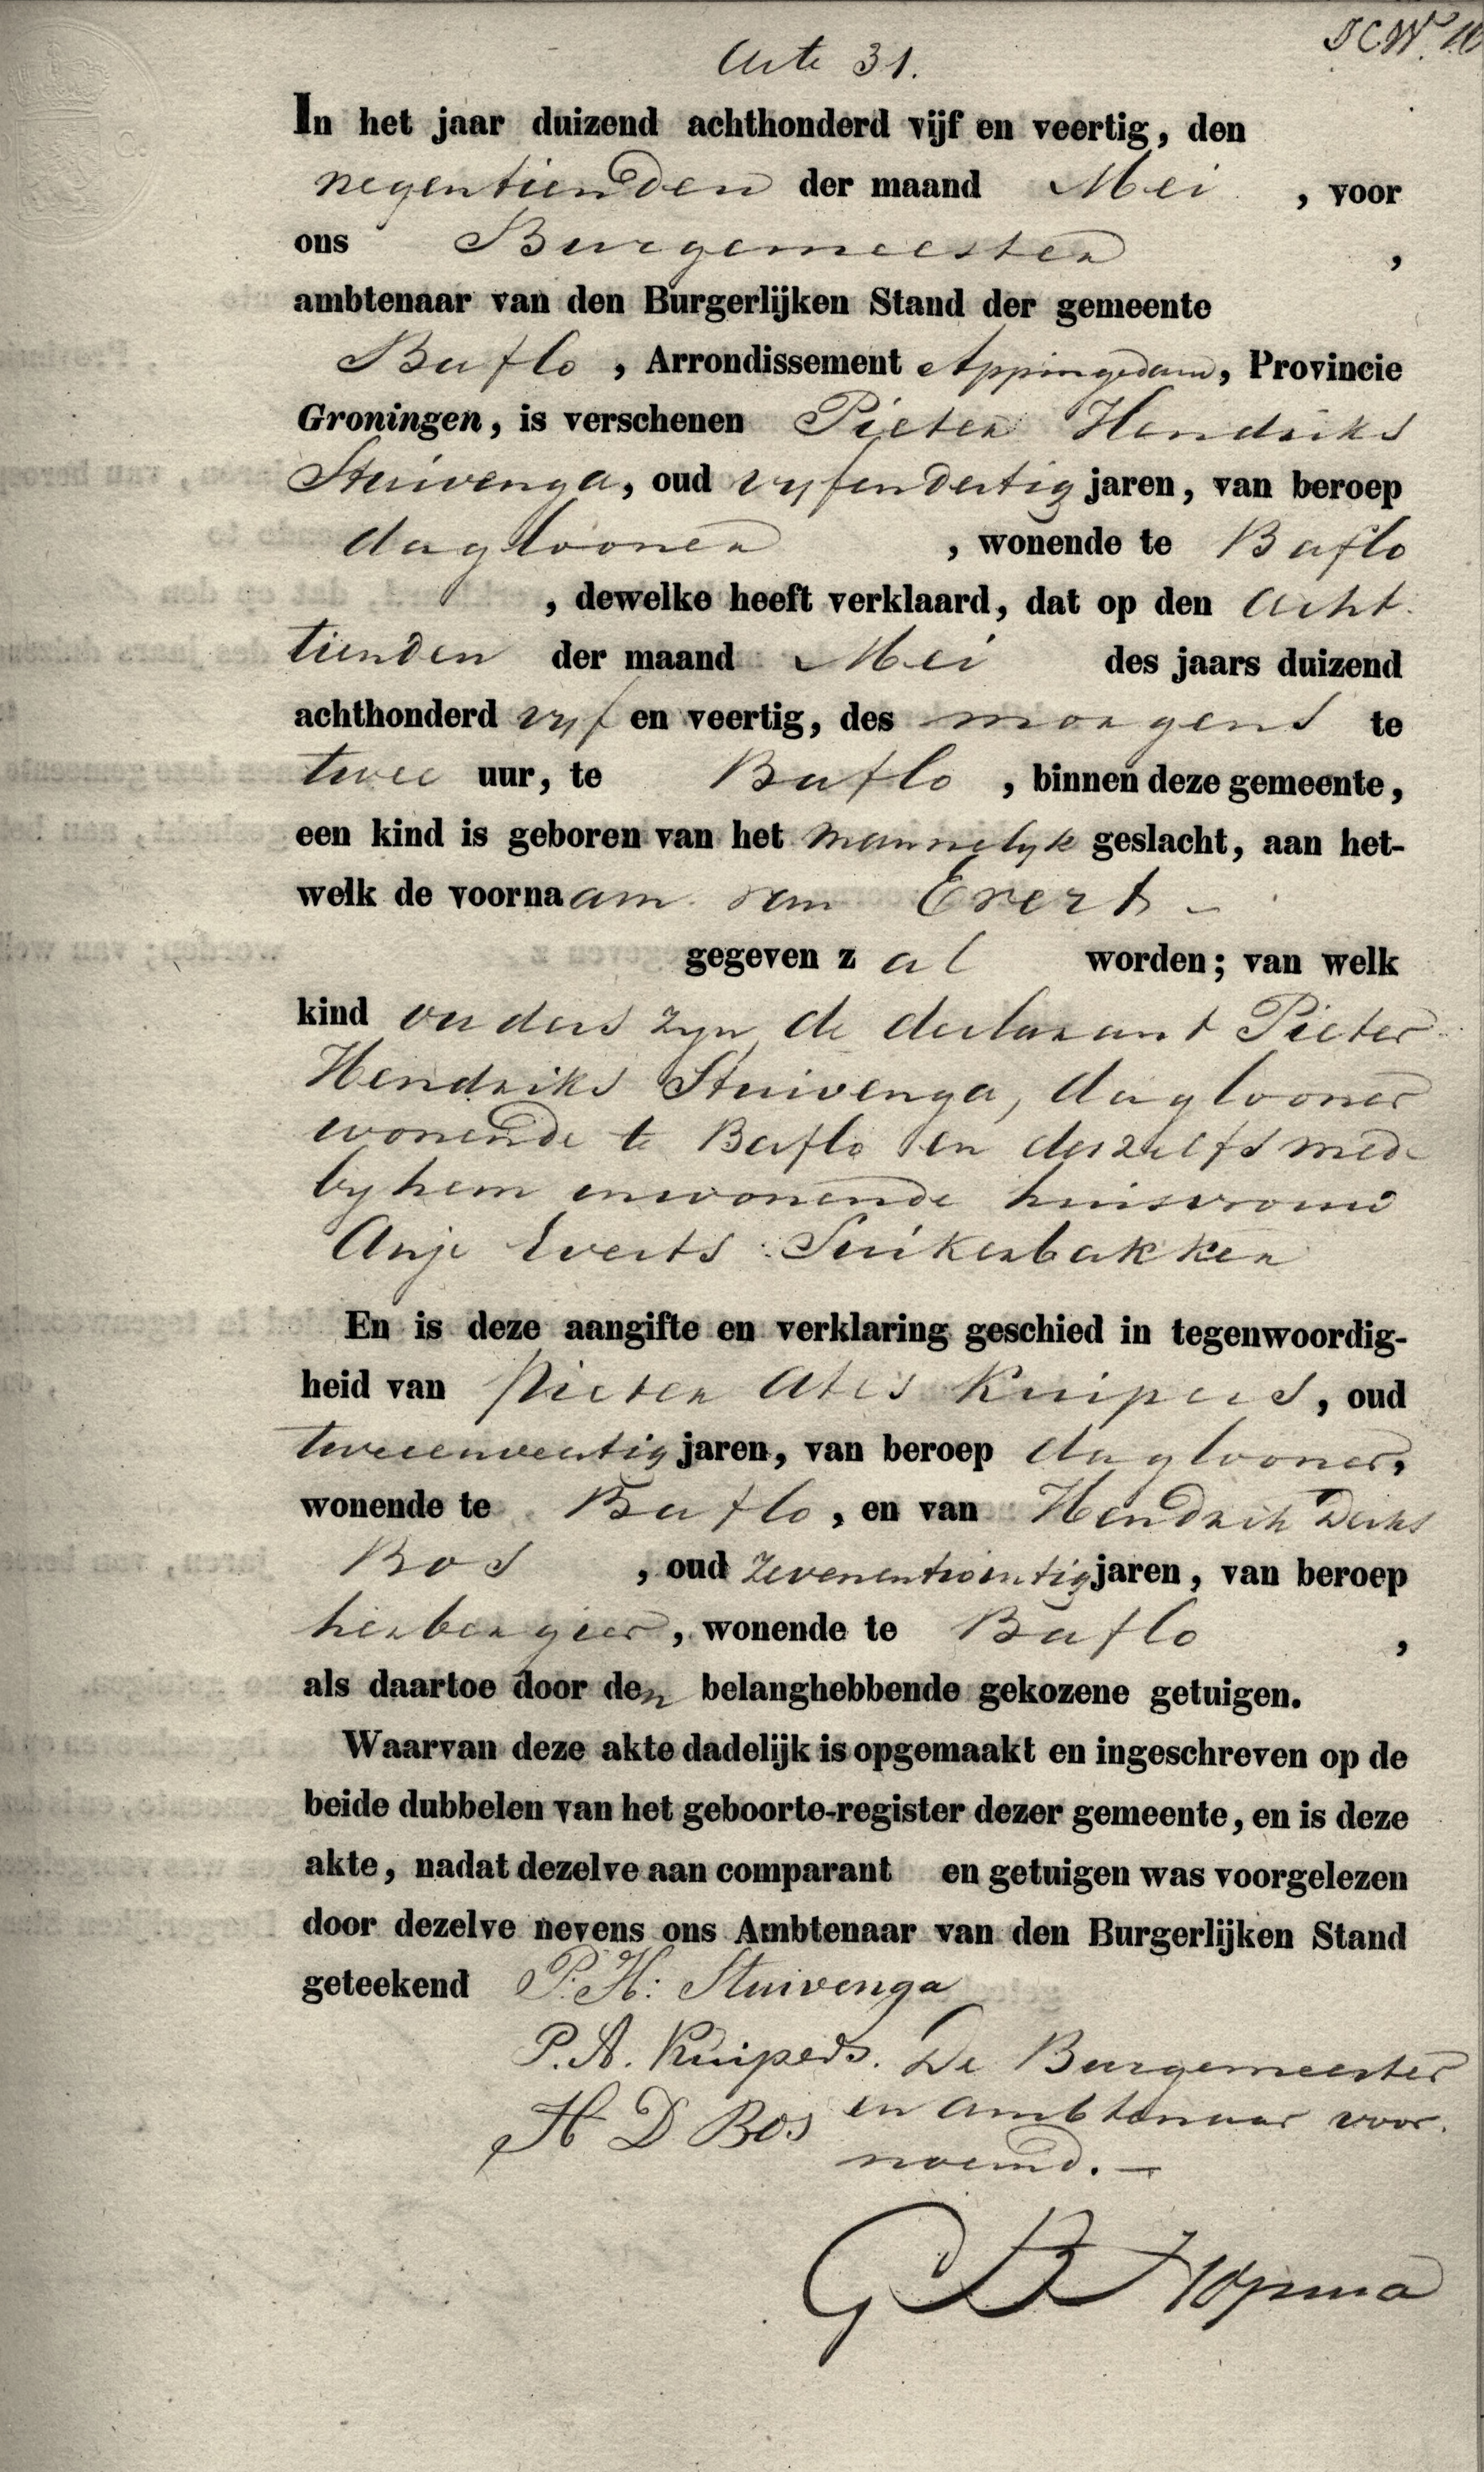 Acte 31.
In het jaar duizend achthonderd vijf en veertig, den
negentienden der maand Mei , voor
ons Burgemeester ,
ambtenaar van den Burgerlijken Stand der gemeente
Baflo , Arrondissement Appingedam, Provincie
Groningen, is verschenen Pieter Hendriks
Stuivenga, oud vyfendertig jaren, van beroep
daglooner , wonende te Baflo
, dewelke heeft verklaard, dat op den acht
tienden der maand Mei des jaars duizend
achthonderd vyf en veertig, des morgens te
twee uur, te Baflo , binnen deze gemeente,
een kind is geboren van het mannelyk geslacht, aan het-
welk de voornaam van Evert -
gegeven zal worden; van welk
kind ouders zyn de declarant Pieter
Hendriks Stuivenga, daglooner
wonende te Baflo en deszelfs mede
by hem inwonende huisvrouw
Anje Everts Suikerbakker
En is deze aangifte en verklaring geschied in tegenwoordig-
heid van Pieter Ates Kuipers, oud
tweeenveertig jaren, van beroep daglooner,
wonende te Baflo, en van Hendrik Derks
Bos , oud zevenentwintig jaren, van beroep
herbergier, wonende te Baflo ,
als daartoe door den belanghebbende gekozene getuigen.
Waarvan deze akte dadelijk is opgemaakt en ingeschreven op de
beide dubbelen van het geboorte-register dezer gemeente, en is deze
akte, nadat dezelve aan comparant en getuigen was voorgelezen
door dezelve nevens ons Ambtenaar van den Burgerlijken Stand
geteekend P. H: Stuivenga
P. A. Kuipers. De Burgemeester
H D Bos en ambtenaar voor
noemd. -